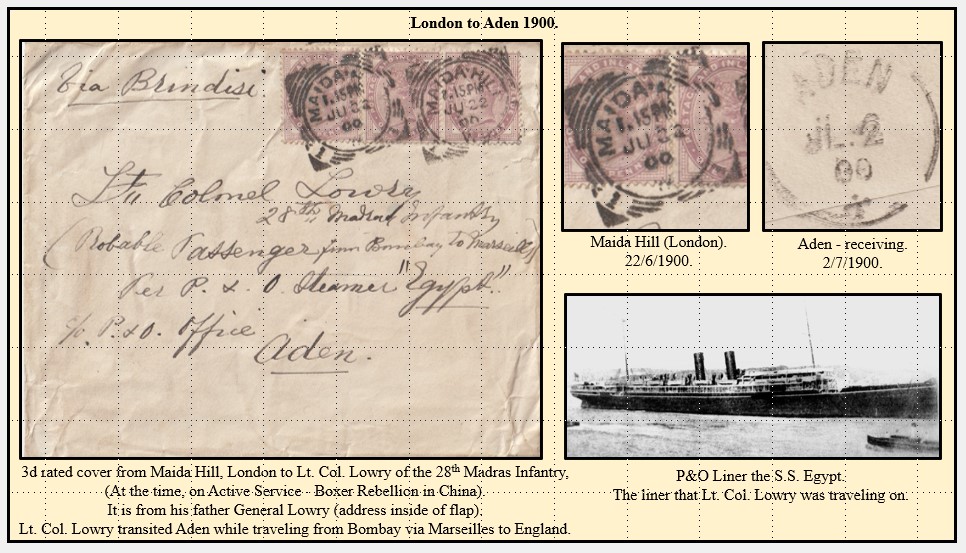 London to Aden 1900.
Via Brindisi
MAIDA HILL
1.15PM
JU 22
00
MAIDA HILL
1.15PM
JU 22
00
Lt. Colonel Lowry
28th Madras Infantry
(Probable Passenger from Bombay to Marseilles)
Per P. & O. Steamer "Egypt".
c/o P. & O. Office
Aden.
MAIDA HILL
1.15PM
JU 22
00
ADEN
JL. 2
00
Maida Hill (London).
22/6/1900.
Aden - receiving.
2/7/1900.
3d rated cover from Maida Hill, London to Lt. Col. Lowry of the 28th Madras Infantry,
(At the time, on Active Service - Boxer Rebellion in China).
It is from his father General Lowry (address inside of flap).
Lt. Col. Lowry transited Aden while traveling from Bombay via Marseilles to England.
P&O Liner the S.S. Egypt.
The liner that Lt. Col. Lowry was traveling on.